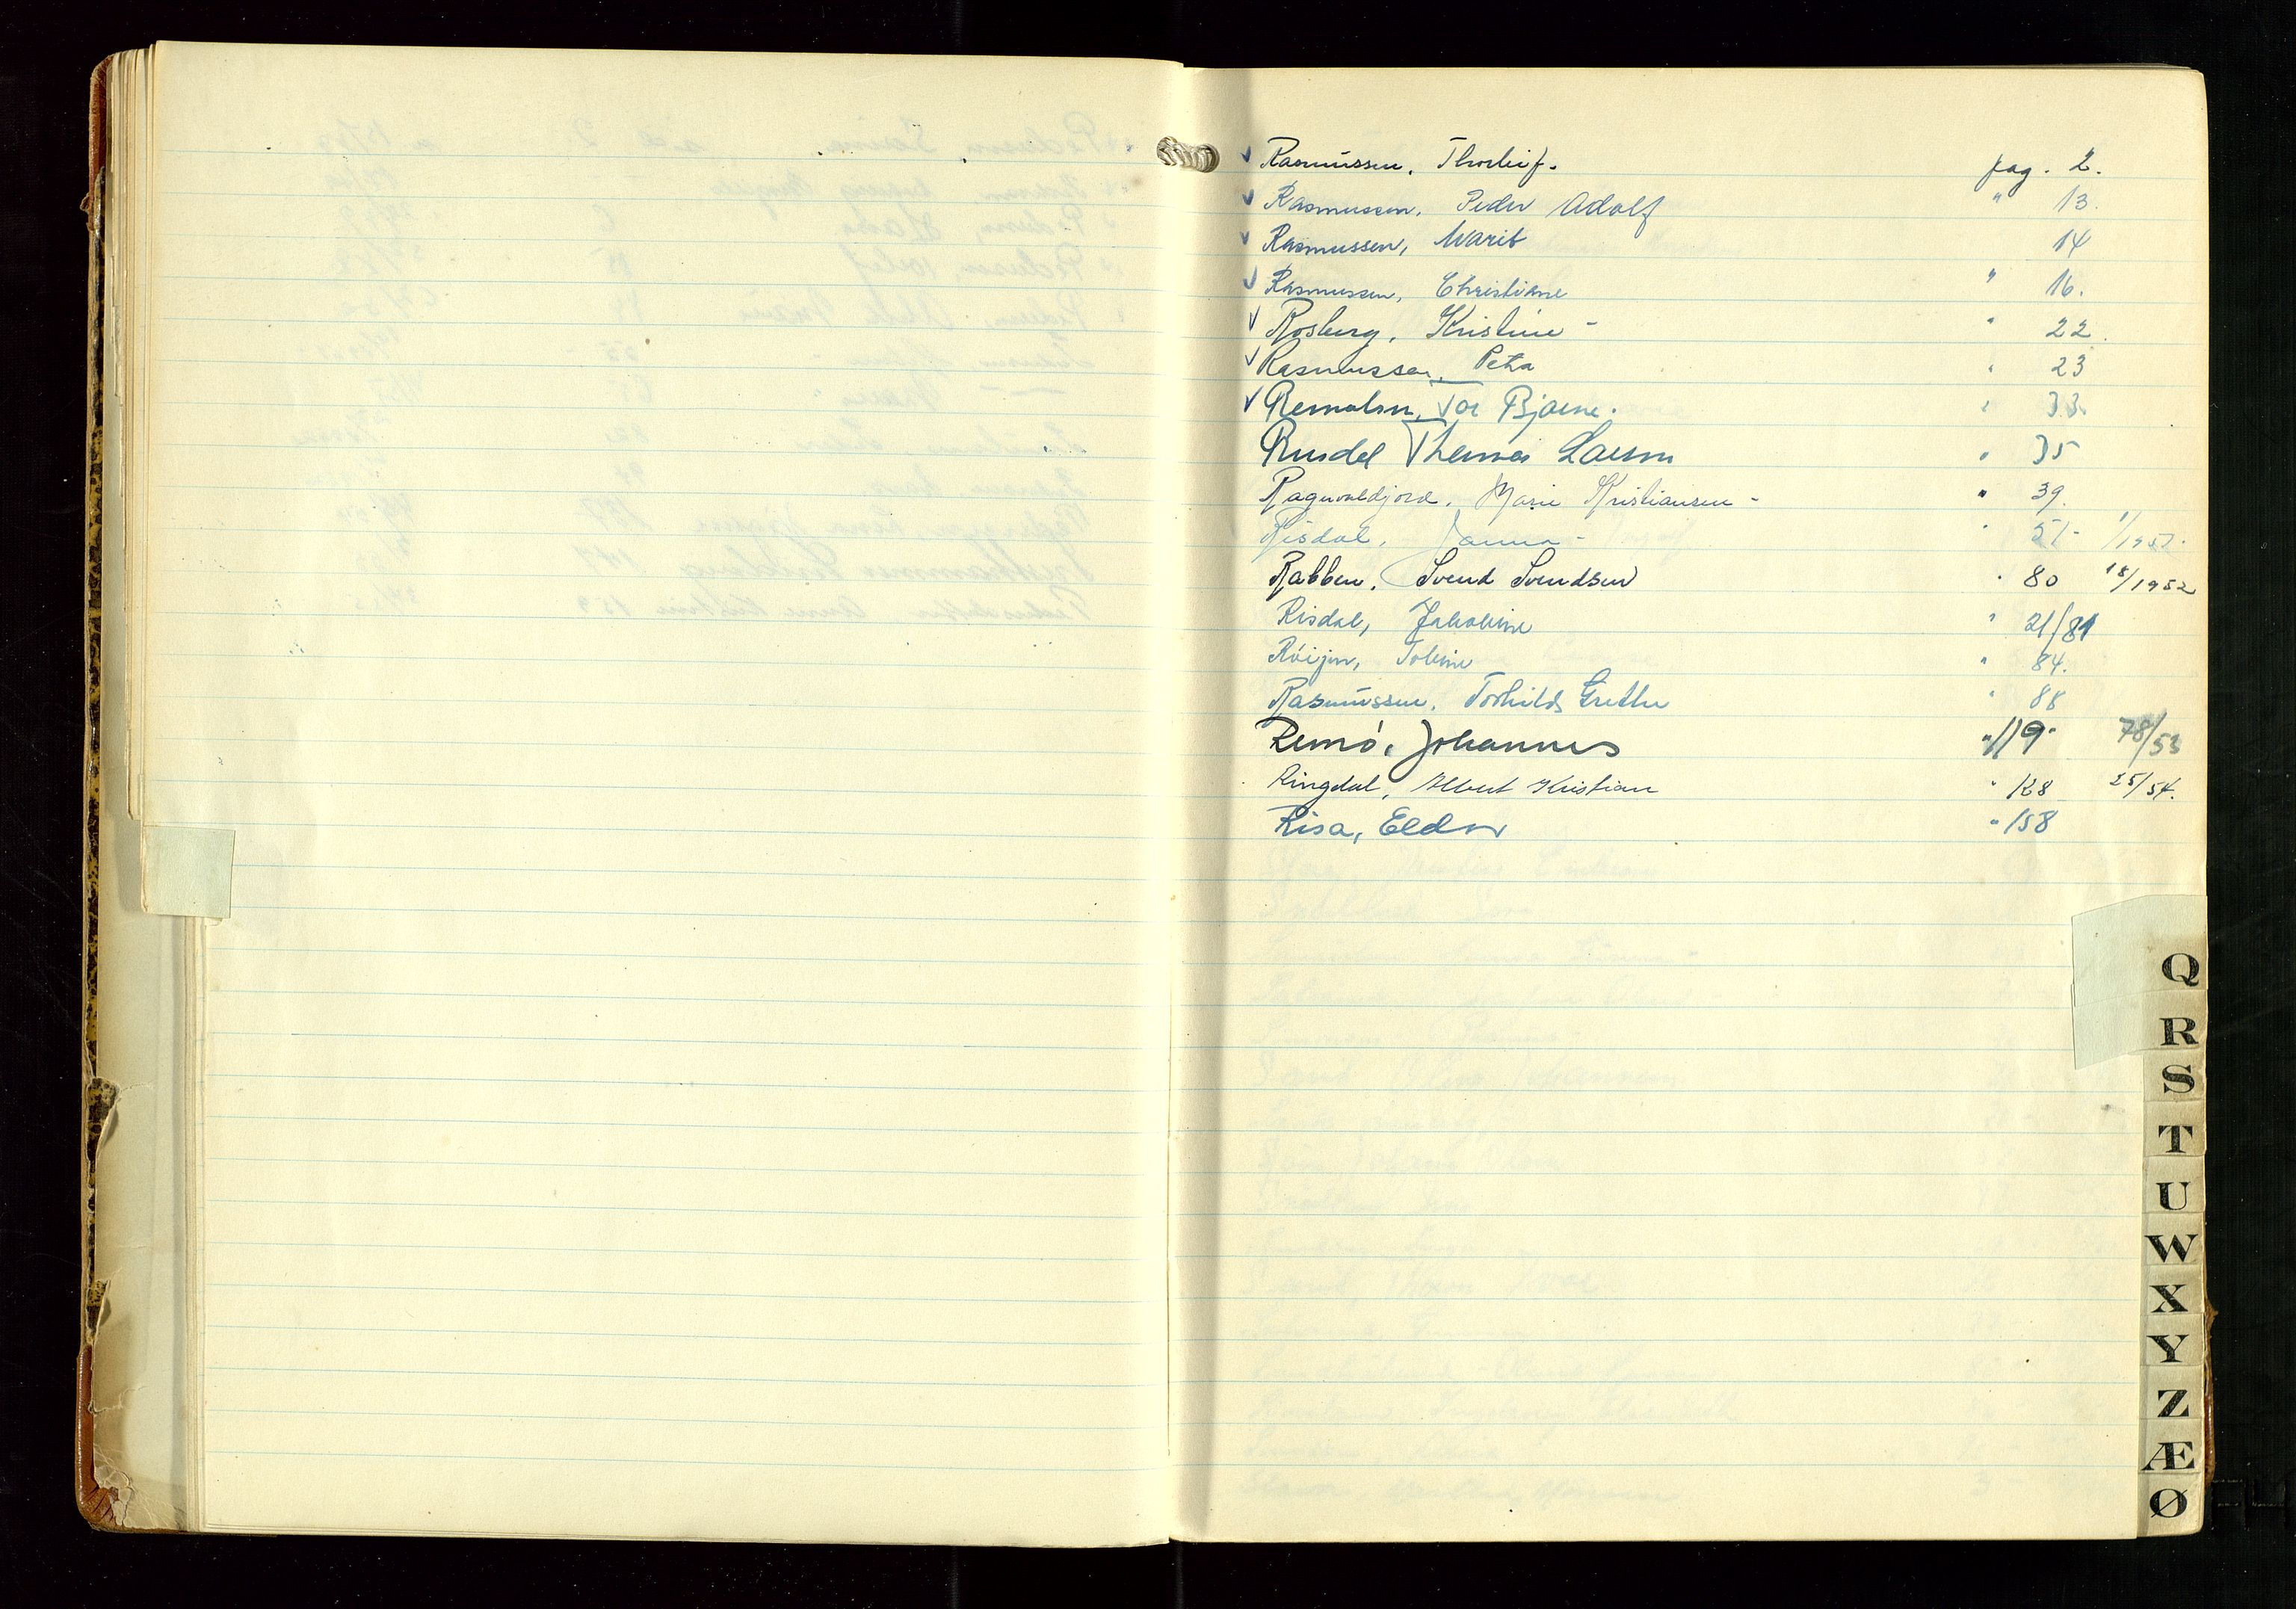 ✓ Rasmussen, Thorleif. pag. 2.
✓ Rasmussen, Peder Adolf " 13.
✓ Rasmussen, Marit 14
✓ Rasmussen, Christiane " 16.
✓ Rosberg, Kristine - " 22.
✓ Rasmussen, Petra " 23
✓ Remalsn, Tor Bjarne. " 33.
Rusdal Thomas Larsen " 35
Ragnvaldjord, Marie Kristiansen - " 39.
Risdal, Janna - " 51- 1/1952.
Rabben, Svend Svendsen " 80 18/1952
Risdal, Jakobine " 21/81
Röijen, Toline " 84.
Rasmussen, Torhild Grethe " 88
Remö, Johannes " 119- 78/53
Ringdal, Albert Kristian " 128 25/54.
Risa, Eldor " 158
Q
R
S
T
U
W
X
Y
Z
Æ
Ø